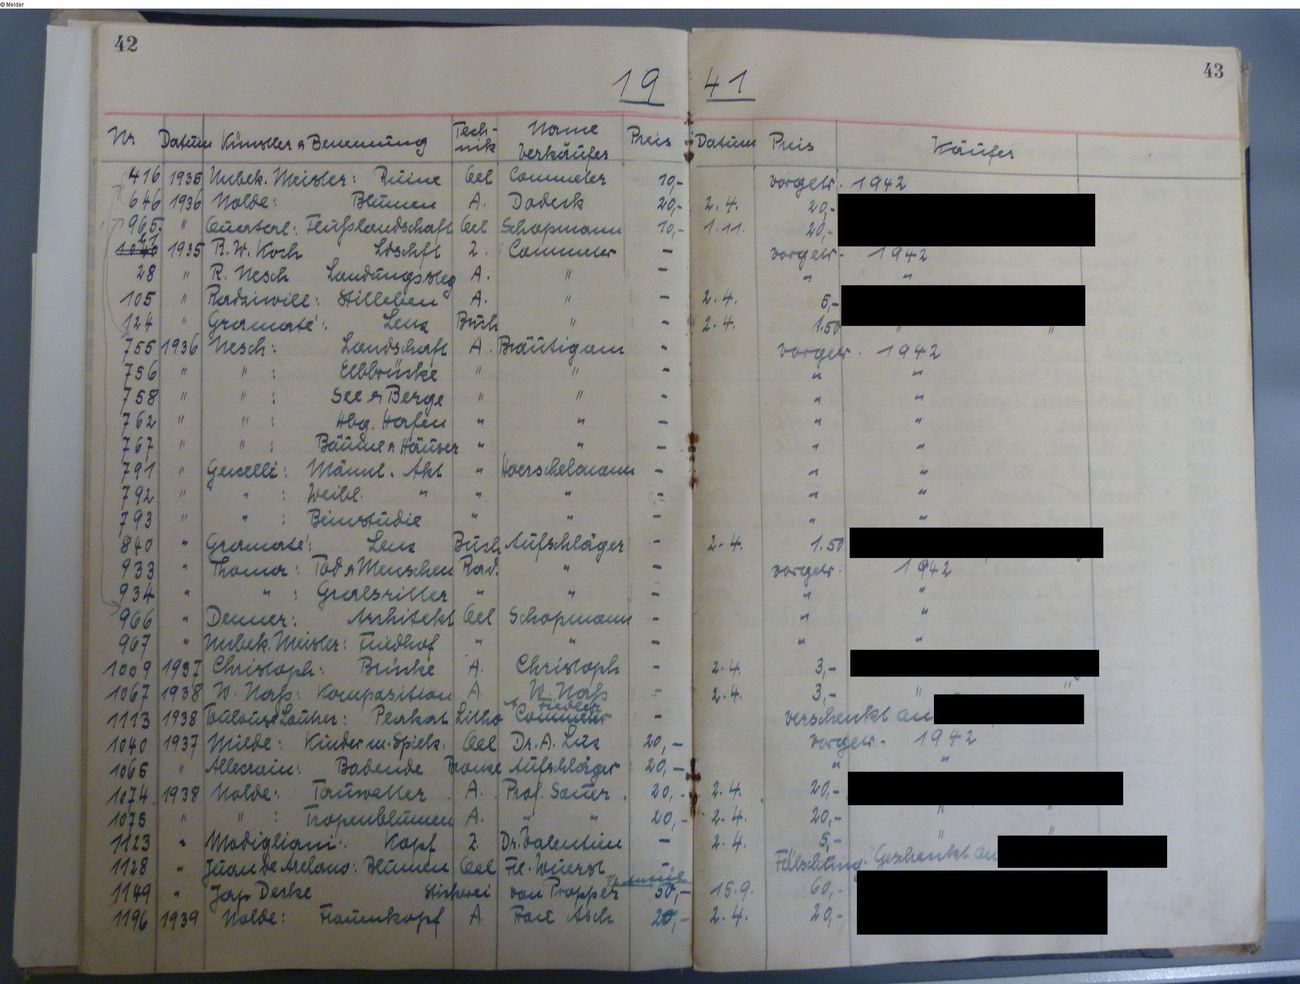 © Melder
42
43
19 41
Nr Datum Künstler & Benennung Tech-nik Name Verkäufer Preis Datum Preis Käufer
416 1935 Unbek. Meister: Ruine Oel Commeter 10,- vorgetr. 1942
646 1936 Nolde: Blumen A. Dodeck 20,- 2.4. 20,-
965. " Flußlandschaft Oel Schopmann 10,- 1.11. 20,-
1935 R.W. Koch Z. Commeter - vorgetr. 1942
28 " R. Nesch Landungssteg A. " - " "
105 " Radziwill: Stilleben A. " - 2.4. 6,-
124 " Gramaté: Lenz Buch " - 2.4. 1.50 " "
755 1936 Nesch: Landschaft A. Bräutigam - vorgetr. 1942
756 " " : Elbbrücke " " - " "
758 " " : See & Berge " " - " "
762 " " : Hbg. Hafen " " - " "
767 " " : Bäume & Häuser " " - " "
791 " Genselli: Männl. Akt " Hoerschelmann - " "
792 " " : Weibl. " " " - " "
793 " " : Beinstudie " " - " "
840 " Gramaté: Lenz Buch Aufschläger - 2.4. 1.50
933 " Thoma: Tod & Menschen Rad. " - vorgetr. 1942
934 " " : Gralsritter " " - " "
966 " Denner: Architekt Oel Schopmann - " "
967 " Unbek. Meister: Friedhof " " - " "
1009 1937 Christoph: Brücke A. Christoph - 2.4. 3,-
1067 1938 W. Komposition A. W. - 2.4. 3,- " "
1113 1938 Litho Commeter - verschenkt an
1040 1937 Milde: Kinder m. Spielz. Oel Dr. A. 20,- vorgetr. 1942
1065 " Badende Bronze Aufschläger 20,- " "
1074 1938 Nolde: A. Prof. Sauer 20,- 2.4. 20,-
1075 " " : Tropenblumen A. " " 20,- 2.4. 20,- " "
1123 " Modigliani: Kopf Z. Dr. Valentien - 2.4. 5,- " "
1128 " Juan de Arelano: Blumen Oel Frl. Fälschung. Geschenkt an
1149 " Jap. Decke Stickerei von Propper 50,- 15.9. 60,-
1196 1939 Nolde: Frauenkopf A. Frau Asch 20,- 2.4. 20,-